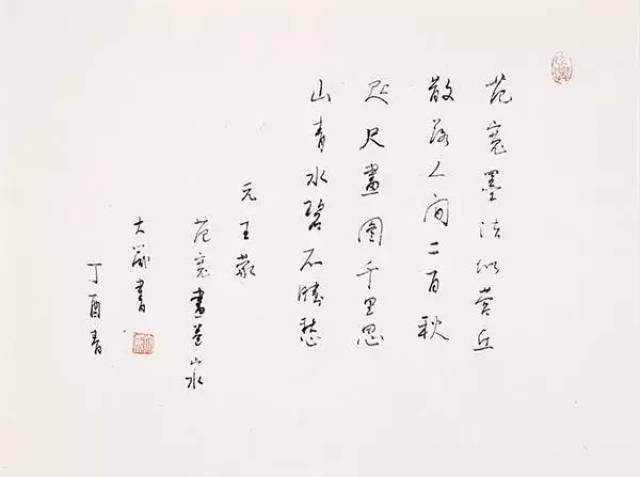 范寬墨法似营丘
散落人间二百秋
咫尺畫图千里思
山青水碧不勝愁
元王蒙
范寬畫卷山水
大 書
丁酉青